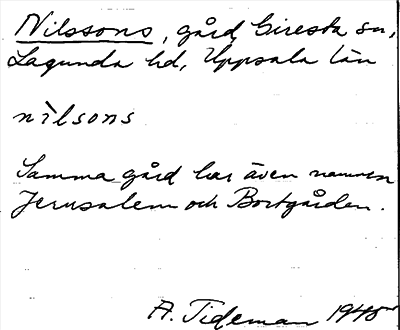 Nilssons, gård, Giresta sn,
Lagunda hd, Uppsala län
nìlsons
Samma gård har även namnen
Jerusalem och Bortgården.
A. Tideman 1945